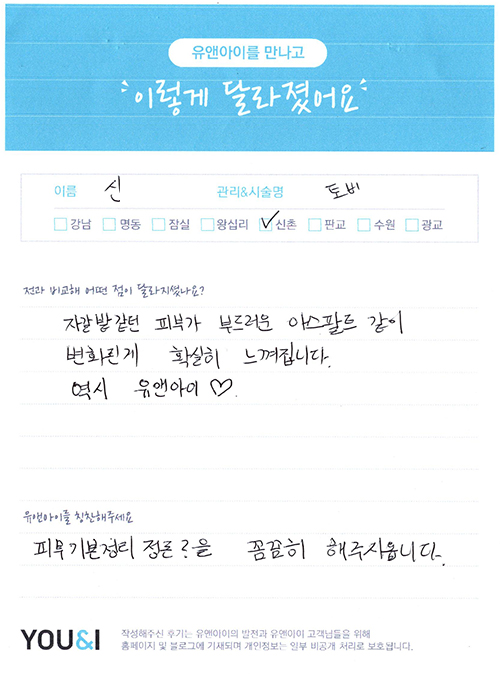 유앤아이를 만나고
이렇게 달라졌어요
이름 신 관리&시술명 토비
강남 명동 잠실 왕십리 신촌 판교 수원 광교
전과 비교해 어떤 점이 달라지셨나요?
자갈밭같던 피부가 부드러운 아스팔트 같이
변화된게 확실히 느껴집니다.
역시 유앤아이♡.
유앤아이를 칭찬해주세요
피부기본정리 정돈?을 꼼꼼히 해주시옵니다.
YOU&I
작성해주신 후기는 유앤아이의 발전과 유앤아이 고객님들을 위해
홈페이지 및 블로그에 기재되며 개인정보는 일부 비공개 처리로 보호됩니다.